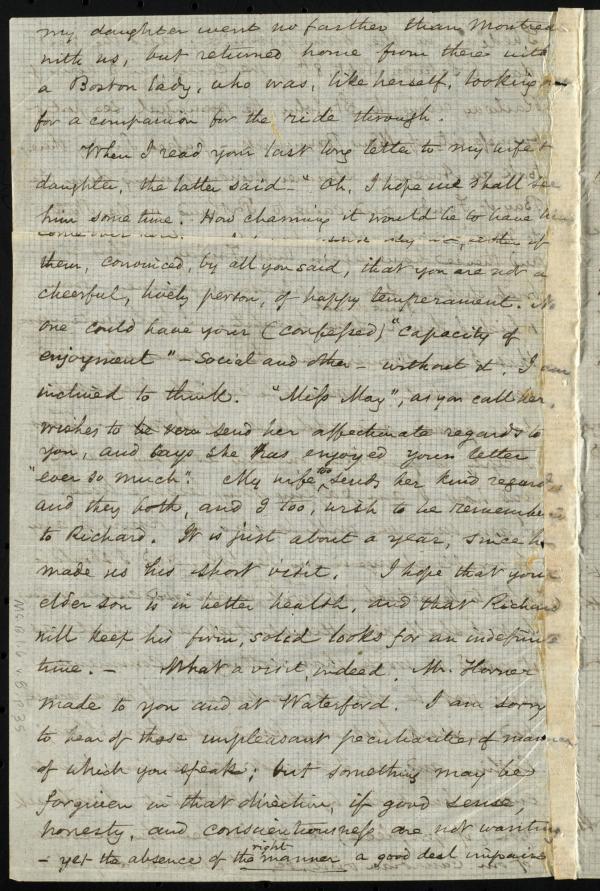 my daughter went no farther than Montreal
with us, but returned home from there with
a Boston lady, who was, like herself, looking
for a companion for the ride through.
When I read your last long letter to my wife &
daughter, the latter said - "Oh, I hope we shall see
him some time. How charming it would be to have him
come over here.
them, convinced, by all you said, that you are not a
cheerful, lively person, of happy temperament. No
one could have your (confessed) "capacity of
enjoyment" - social and other - without it, I am
inclined to think. "Miss May", as you call her,
wishes to be very send her affectionate regards to
you, and says she has enjoyed your letter
"ever so much". My wife too sends her kind regards
and they both, and I too, wish to be remembered
to Richard. It is just about a year, since he
made us his short visit. I hope that your
elder son is in better health, and that Richard
will keep his firm, solid looks for an indefinite
time. - What a visit, indeed, Mr. Horner
made to you and at Waterford. I am sorry
to hear of those unpleasant peculiarities of manner
of which you speak; but something may be
forgiven in that direction, if good sense,
honesty, and conscientiousness are not wanting
- yet the absence of the right manner a good deal impairs